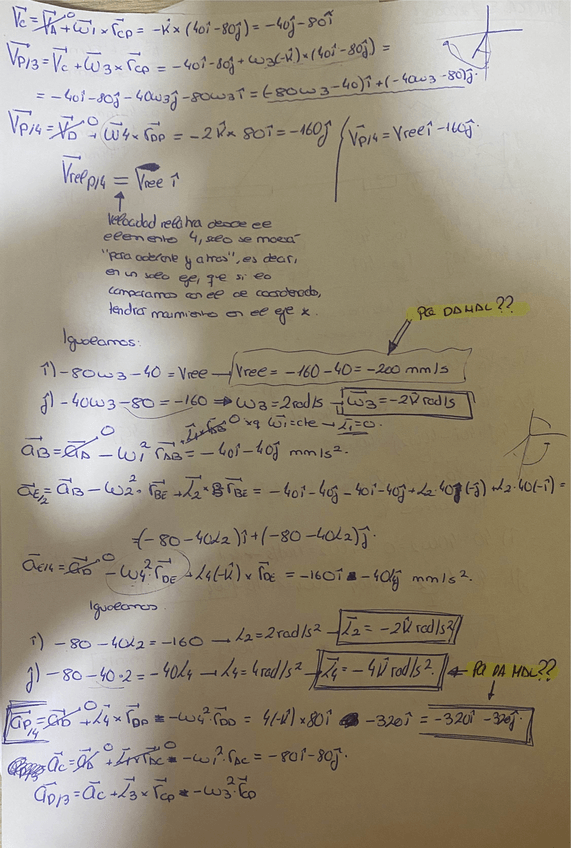 V⃗c = V⃗A⁰ + ω⃗1 × r⃗CP = -k̂ × (40î - 80ĵ) = -40ĵ - 80î
V⃗P/3 = V⃗c + ω⃗3 × r⃗CP = -40î - 80ĵ + ω3(-k̂) × (40î - 80ĵ) =
= -40î - 80ĵ - 40ω3ĵ - 80ω3î = (-80ω3 - 40)î + (-40ω3 - 80)ĵ.
V⃗P/4 = V⃗D⁰ + ω⃗4 × r⃗DP = -2k̂ × 80î = -160ĵ
V⃗P/4 = Vreeî - 160ĵ.
V⃗relP/4 = Vree î
Velocidad relativa desde el
elemento 4, solo se moverá
"para adelante y atras", es decir,
en un solo eje, que si lo
comparamos con el de coordenado,
tendra movimiento en el eje x.
PQ DA MAL??
Igualamos:
î) -80ω3 - 40 = Vree → Vree = -160 - 40 = -200 mm/s
ĵ) -40ω3 - 80 = -160 ⇒ ω3 = 2rad/s → ω⃗3 = -2k̂ rad/s
a⃗B = a⃗A⁰ - ω1² r⃗AB = -40î - 40ĵ mm/s².
xq ω⃗1 = cte → α⃗1 = 0.
a⃗E/2 = a⃗B - ω2² · r⃗BE + α⃗2 × r⃗BE = -40î - 40ĵ - 40î - 40ĵ + α2·40(-ĵ) + α2·40(-î) =
= (-80 - 40α2)î + (-80 - 40α2)ĵ.
a⃗E/4 = a⃗D⁰ - ω4² · r⃗DE + α4(-k̂) × r⃗DE = -160î - 40α4ĵ mm/s².
Igualamos
î) -80 - 40α2 = -160 → α2 = 2rad/s² → α⃗2 = -2k̂ rad/s²
ĵ) -80 - 40·2 = -40α4 → α4 = 4rad/s² → α⃗4 = -4k̂ rad/s². ← PQ DA MAL??
a⃗P/4 = a⃗D⁰ + α⃗4 × r⃗DP - ω4² · r⃗DP = 4(-k̂) × 80î - 320î = -320î - 320ĵ.
a⃗C = a⃗A⁰ + α⃗1 × r⃗AC⁰ - ω1² · r⃗AC = -80î - 80ĵ.
a⃗P/3 = a⃗C + α⃗3 × r⃗CP - ω3² · r⃗CP